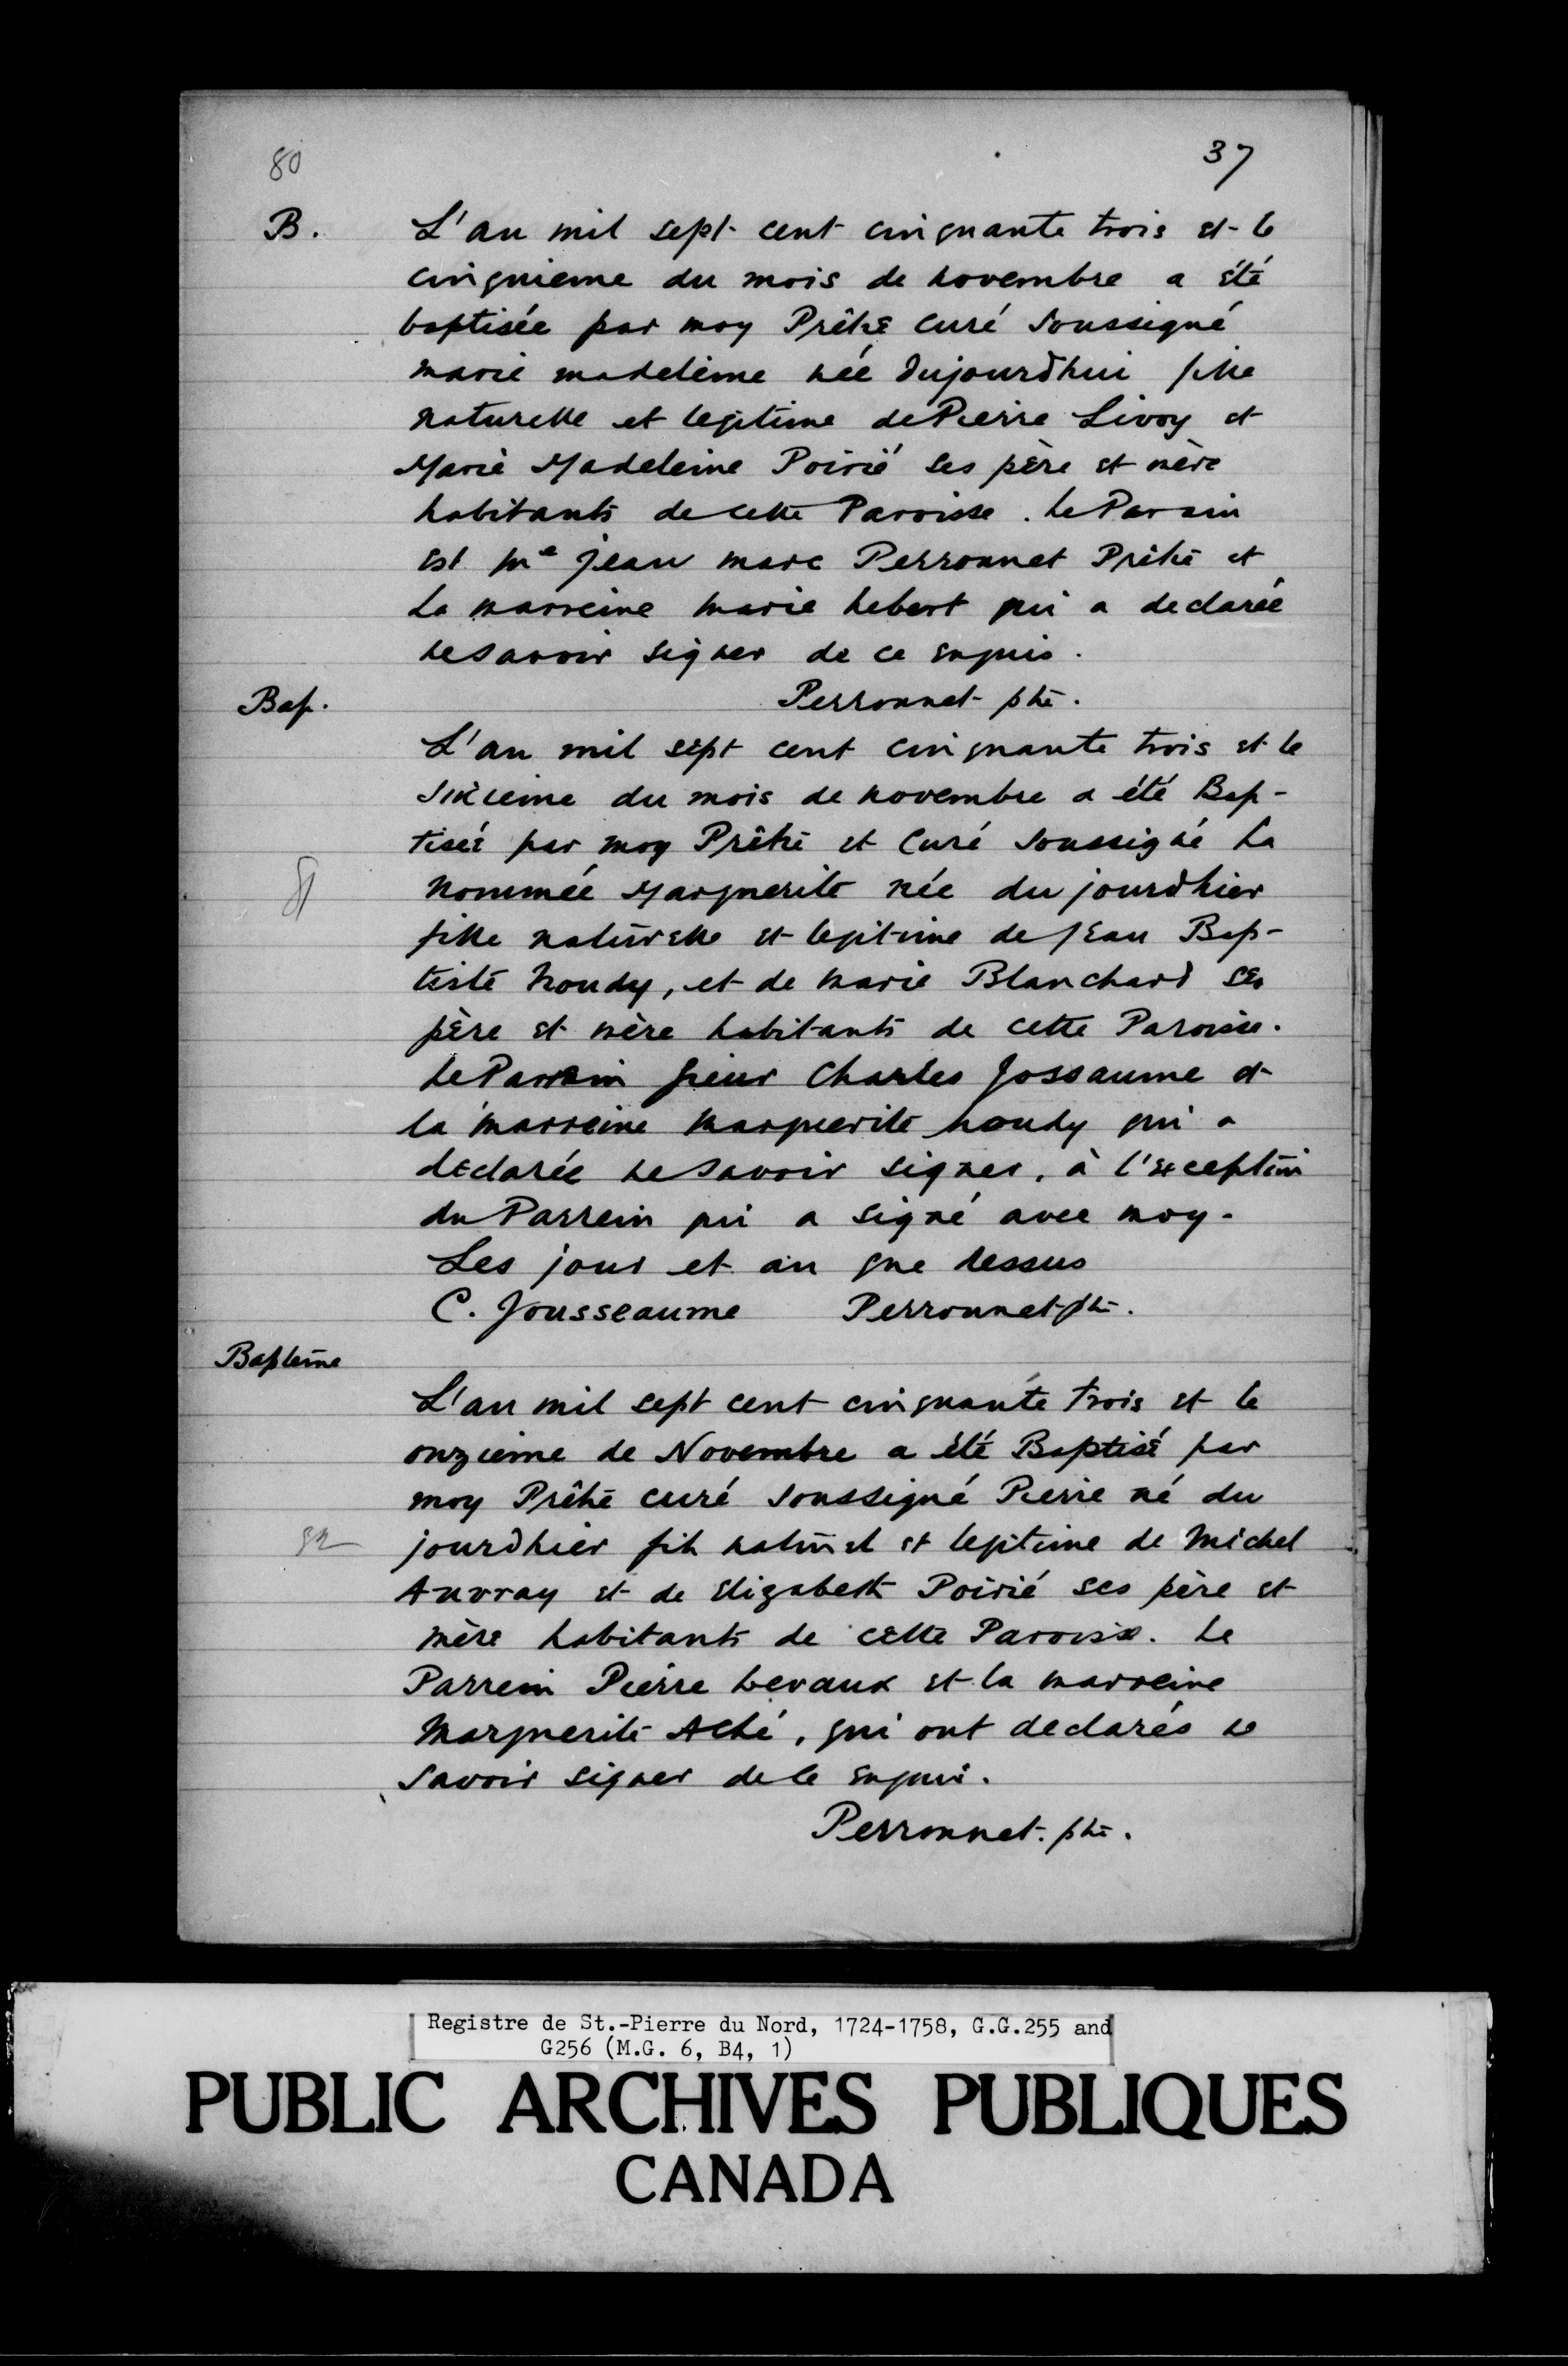 80
37
B.
L'an mil sept cent cinquante trois et le
cinquieme du mois de novembre a été
baptisée par moy Prêtre curé Soussigné
marie madeleine née dujourdhui fille
naturelle et legitime de Pierre Livoy et
Marie Madeleine Poirié ses père et mère
habitants de cette Paroisse. Le Parain
est Me jean marc Perronnet Prêtre et
La marreine marie hebert qui a declarée
ne savoir signer de ce enquis.
Perronnet ptre.
Bap.
L'an mil sept cent cinquante trois et le
Sixieme du mois de novembre a été Bap-
tisée par moy Prêtre et Curé Soussigné La
nommée Marguerite née du jourdhier
fille naturelle et legitime de jean Bap-
81
tiste houdy, et de marie Blanchard ses
père et mère habitants de cette Paroisse.
Le Parrain sieur Charles Jossaume et
la marreine marguerite houdy qui a
declarée ne savoir signer, à l'exception
du Parrein qui a signé avec moy.
Les jour et an que dessus
C. Jousseaume Perronnet ptre.
Baptême
L'an mil sept cent cinquante trois et le
onzieme de Novembre a été Baptisé par
moy Prêtre curé Soussigné Pierre né du
82
jourdhier fils naturel et legitime de Michel
Auvray et de Elizabeth Poirié ses père et
mère habitants de cette Paroisse. Le
Parrein Pierre Levaux et la marreine
Marguerite Aché, qui ont declarés ne
savoir signer de ce enquis.
Perronnet. ptre.
Registre de St.-Pierre du Nord, 1724-1758, G.G.255 and
G256 (M.G. 6, B4, 1)
PUBLIC ARCHIVES PUBLIQUES
CANADA